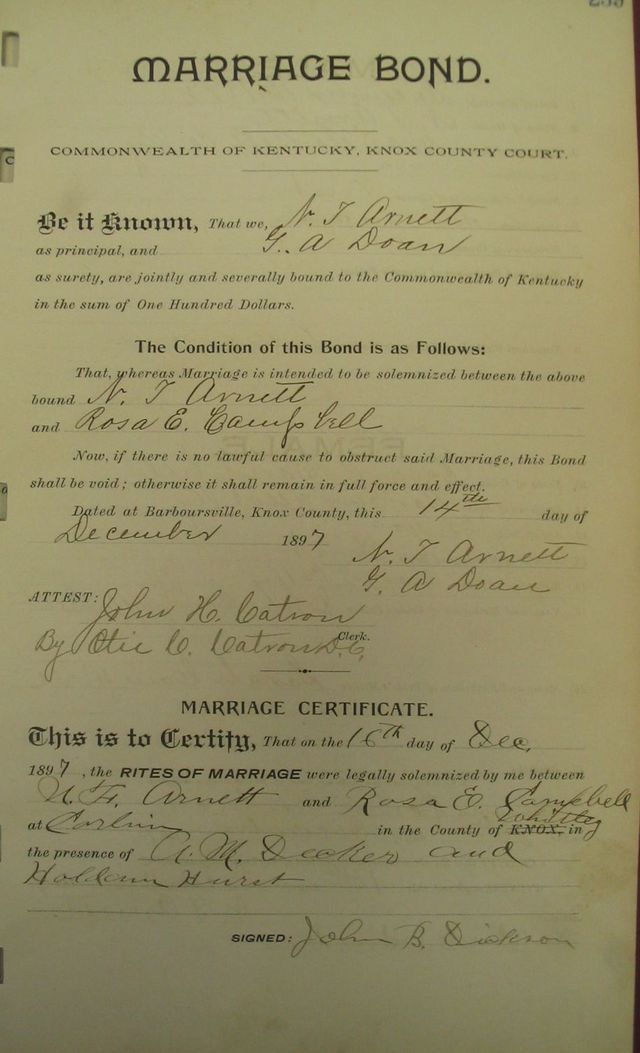 MARRIAGE BOND.
COMMONWEALTH OF KENTUCKY, KNOX COUNTY COURT.
Be it Known, That we, N. T Arnett
as principal, and G. A Doan
as surety, are jointly and severally bound to the Commonwealth of Kentucky
in the sum of One Hundred Dollars.
The Condition of this Bond is as Follows:
That, whereas Marriage is intended to be solemnized between the above
bound N. T Arnett
and Rosa E. Campbell
Now, if there is no lawful cause to obstruct said Marriage, this Bond
shall be void; otherwise it shall remain in full force and effect.
Dated at Barboursville, Knox County, this 14th day of
December 1897
N. T Arnett
G. A Doan
ATTEST: John H. Catron
Clerk.
By Otie C. Catron D.C.
MARRIAGE CERTIFICATE.
This is to Certify, That on the 16th day of Dec,
1897, the RITES OF MARRIAGE were legally solemnized by me between
Arnett and Rosa E. Campbell
Whitley
at Corbin in the County of KNOX, in
the presence of A. M. Decker and
Hurst
SIGNED: John B. Dickson